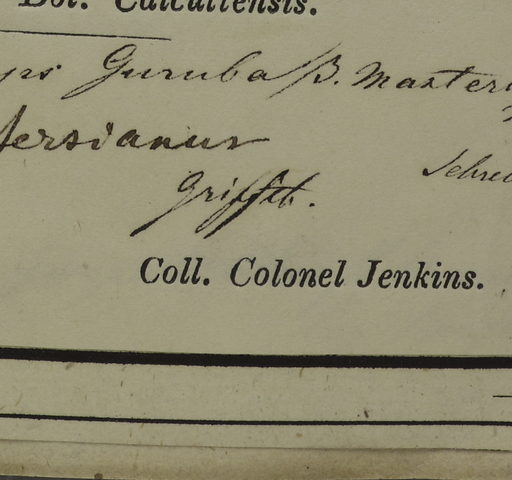 Bot. Calcuttensis.
Guruba B. Masters
Mastersianus
Griffith.
Coll. Colonel Jenkins.